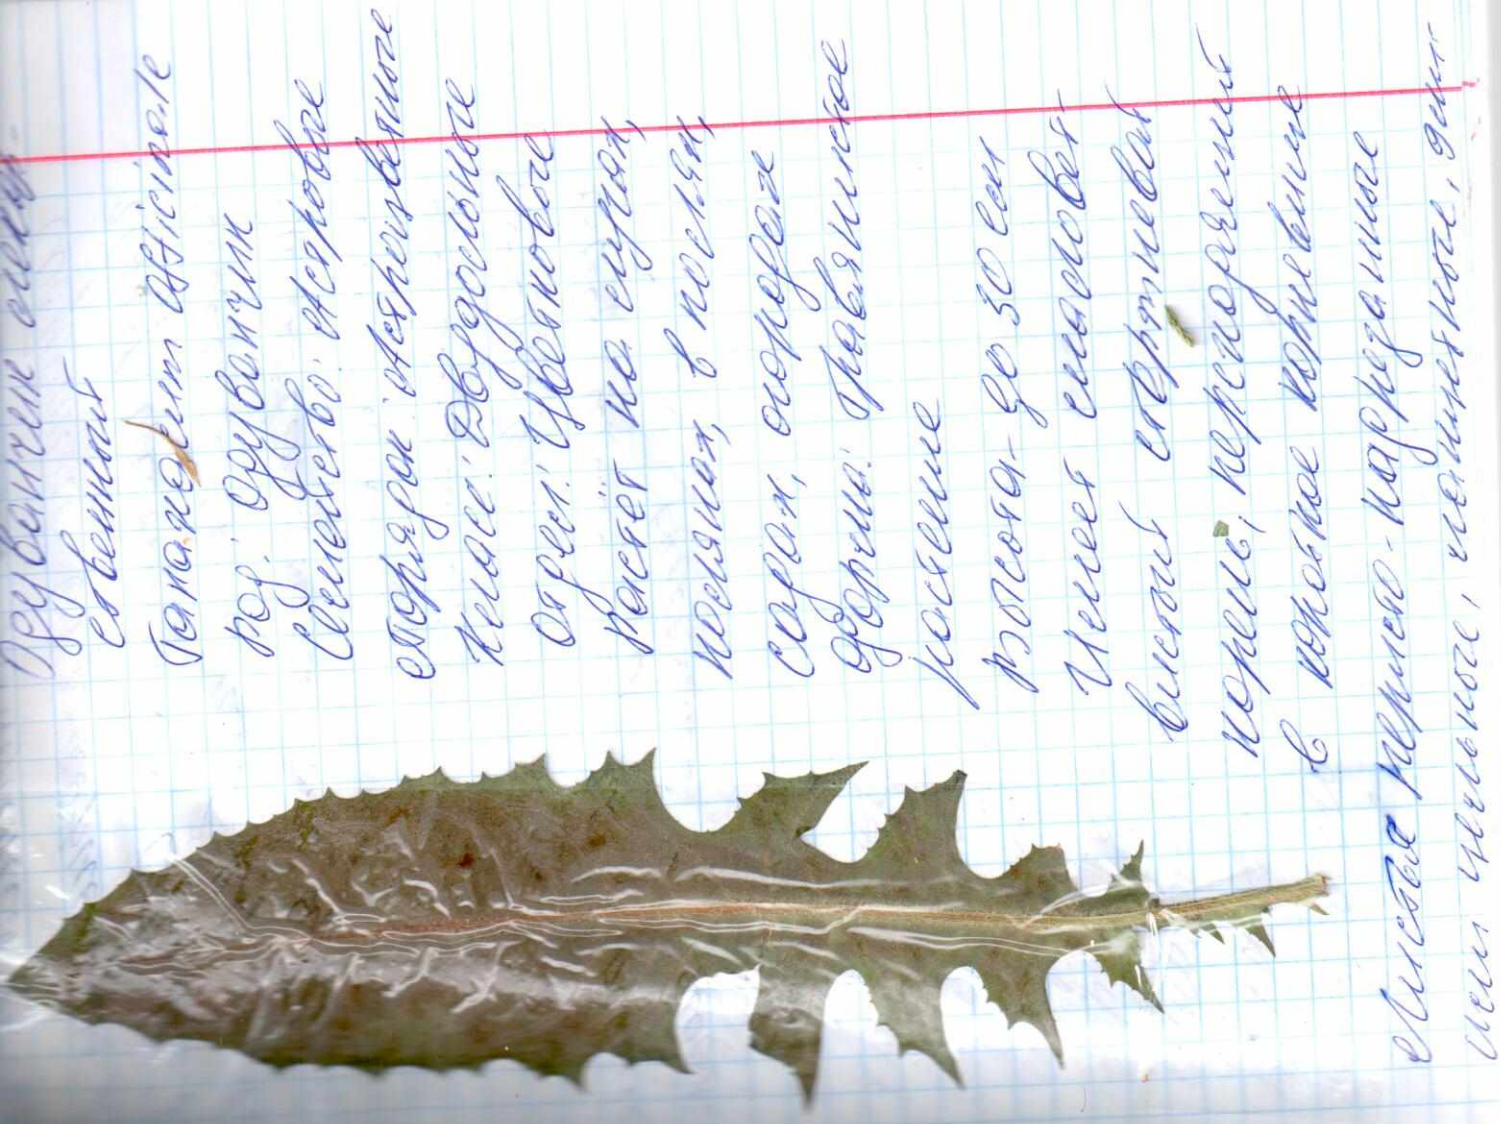 Одуванчик лекар-
ственный
Taraxacum officinale
Род: Одуванчик
Семейство: Астровые
Порядок: Астроцветные
Класс: Двудольные
Отдел: Цветковые
Растёт на лугах,
полянах, в полях,
садах, огородах
Форма: Травянистое
растение
Высота - до 30 см
Имеет сильно вет-
вистый стержневой
корень, переходящий
в короткое корневище
Листья перисто-надрезанные
или цельные, ланцетные, длин-